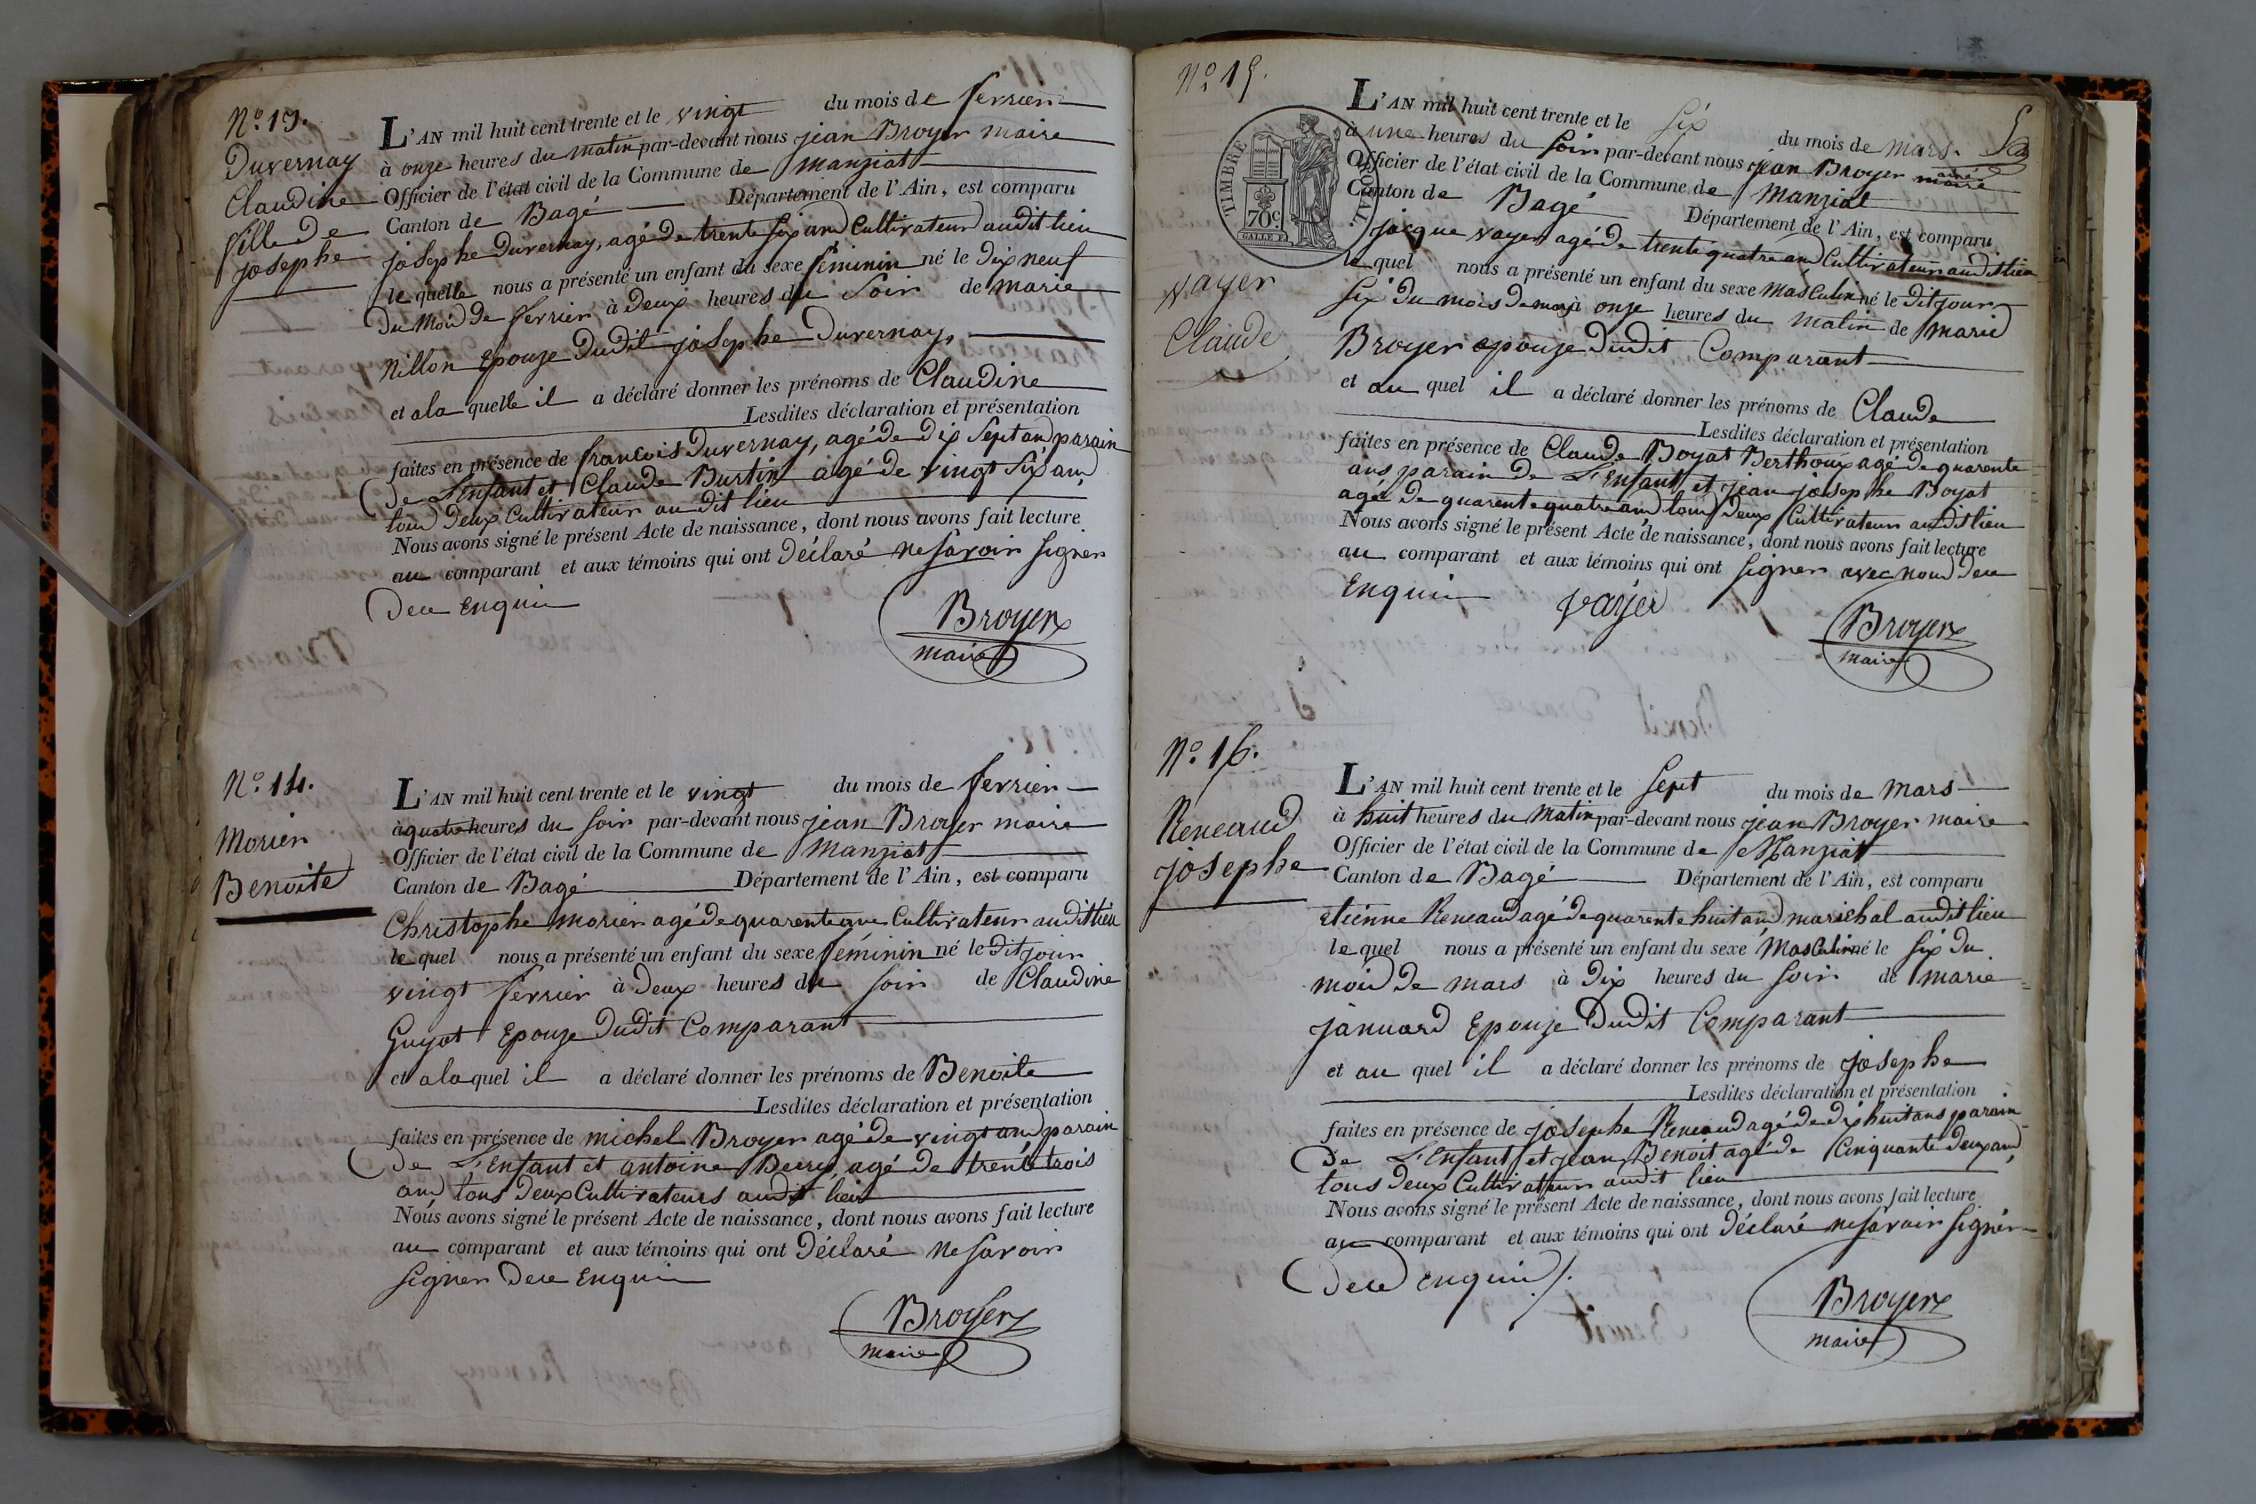 N.º 13.
Duvernay
Claudine
fille de
josephe
L'AN mil huit cent trente et le vingt du mois de fevrier
à onze heures du matin par-devant nous jean Broyer maire
Officier de l'état civil de la Commune de Manziat
Canton de Bagé Département de l'Ain, est comparu
josephe Duvernay, agé de trente six ans Cultivateur audit lieu
le quelle nous a présenté un enfant du sexe féminin né le dix neuf
du mois de fevrier à deux heures du soir de marie
Nillon Epouze dudit josephe Duvernay,
et a la quelle il a déclaré donner les prénoms de Claudine
Lesdites déclaration et présentation
faites en présence de francois Duvernay, agé de dix sept ans parain
de L'enfant et Claude Burtin agé de vingt six ans,
tous deux Cultivateur au dit lieu
Nous avons signé le présent Acte de naissance, dont nous avons fait lecture
au comparant et aux témoins qui ont déclaré ne savoir signer
de ce enquis
Broyer
maire
N.º 14.
Morier
Benoite
L'AN mil huit cent trente et le vingt du mois de fevrier
à quatre heures du soir par-devant nous jean Broyer maire
Officier de l'état civil de la Commune de Manziat
Canton de Bagé Département de l'Ain, est comparu
Christophe morier agé de quarente ans Cultivateur audit lieu
le quel nous a présenté un enfant du sexe féminin né le dit jour
vingt fevrier à deux heures du soir de Claudine
Guyot Epouze dudit Comparant
et a la quel il a déclaré donner les prénoms de Benoite
Lesdites déclaration et présentation
faites en présence de michel Broyer agé de vingt ans parain
de L'enfant et antoine agé de trente trois
ans, tous deux Cultivateurs audit lieu
Nous avons signé le présent Acte de naissance, dont nous avons fait lecture
au comparant et aux témoins qui ont déclaré ne savoir
signer de ce enquis
Broyer
maire
N.º 15.
TIMBRE ROYAL.
70.c
Vayer
Claude
L'AN mil huit cent trente et le six du mois de mars.
à une heures du soir par-devant nous jean Broyer maire
Officier de l'état civil de la Commune de Manziat
Canton de Bagé Département de l'Ain, est comparu
jacque vayer agé de trente quatre ans Cultivateur audit lieu
le quel nous a présenté un enfant du sexe masculin né le dit jour
six du mois de mars à onze heures du matin de marie
Broyer epouze dudit Comparant
et au quel il a déclaré donner les prénoms de Claude
Lesdites déclaration et présentation
faites en présence de Claude Boyat Berthoux agé de quarente
ans parain de L'enfant et jean josephe Boyat
agé de quarente quatre ans tous deux Cultivateur audit lieu
Nous avons signé le présent Acte de naissance, dont nous avons fait lecture
au comparant et aux témoins qui ont signer avec nous de ce
Enquis
vayer
Broyer
maire
N.º 16.
Reneaud
josephe
L'AN mil huit cent trente et le sept du mois de mars
à huit heures du matin par-devant nous jean Broyer maire
Officier de l'état civil de la Commune de Manziat
Canton de Bagé Département de l'Ain, est comparu
etienne Reneaud agé de quarente huit ans marichal audit lieu
le quel nous a présenté un enfant du sexe masculin né le six du
mois de mars à dix heures du soir de marie
januard Epouze dudit Comparant
et au quel il a déclaré donner les prénoms de josephe
Lesdites déclaration et présentation
faites en présence de josephe Reneaud agé de dix huit ans parain
de L'enfant et jean Benoit agé de Cinquante deux ans,
tous deux Cultivateur audit lieu
Nous avons signé le présent Acte de naissance, dont nous avons fait lecture
au comparant et aux témoins qui ont déclaré ne savoir signer
de ce enquis
Broyer
maire